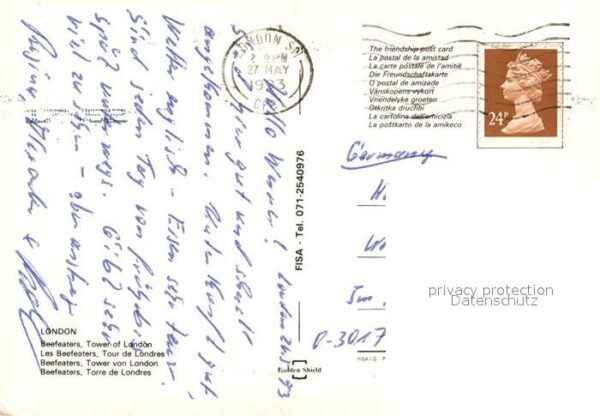 Hallo Werner! London 26.5.93
Sind hier gut und schnell
angekommen. Unterkunft gut
Wetter englisch - Essen sehr teuer.
Sind jeden Tag von früh bis
spät unterwegs. Gibt sehr
viel zu sehen - aber anstrengend
LONDON
Beefeaters, Tower of London
Les Beefeaters, Tour de Londres
Beefeaters, Tower von London
Beefeaters, Torre de Londres
FISA - Tel. 071-2540976
Golden Shield
LONDON SW
27 MAY
1993
The friendship post card
La postal de la amistad
La carte postale de l'amitié
Die Freundschaftskarte
O postal de amizade
Vänskopens vykort
Vriendelyke groeten
Otkritka druchbi
La cartolina dell'amicizia
La poŝtkarto de la amikeco
24P
Germany
D-3017
privacy protection
Datenschutz